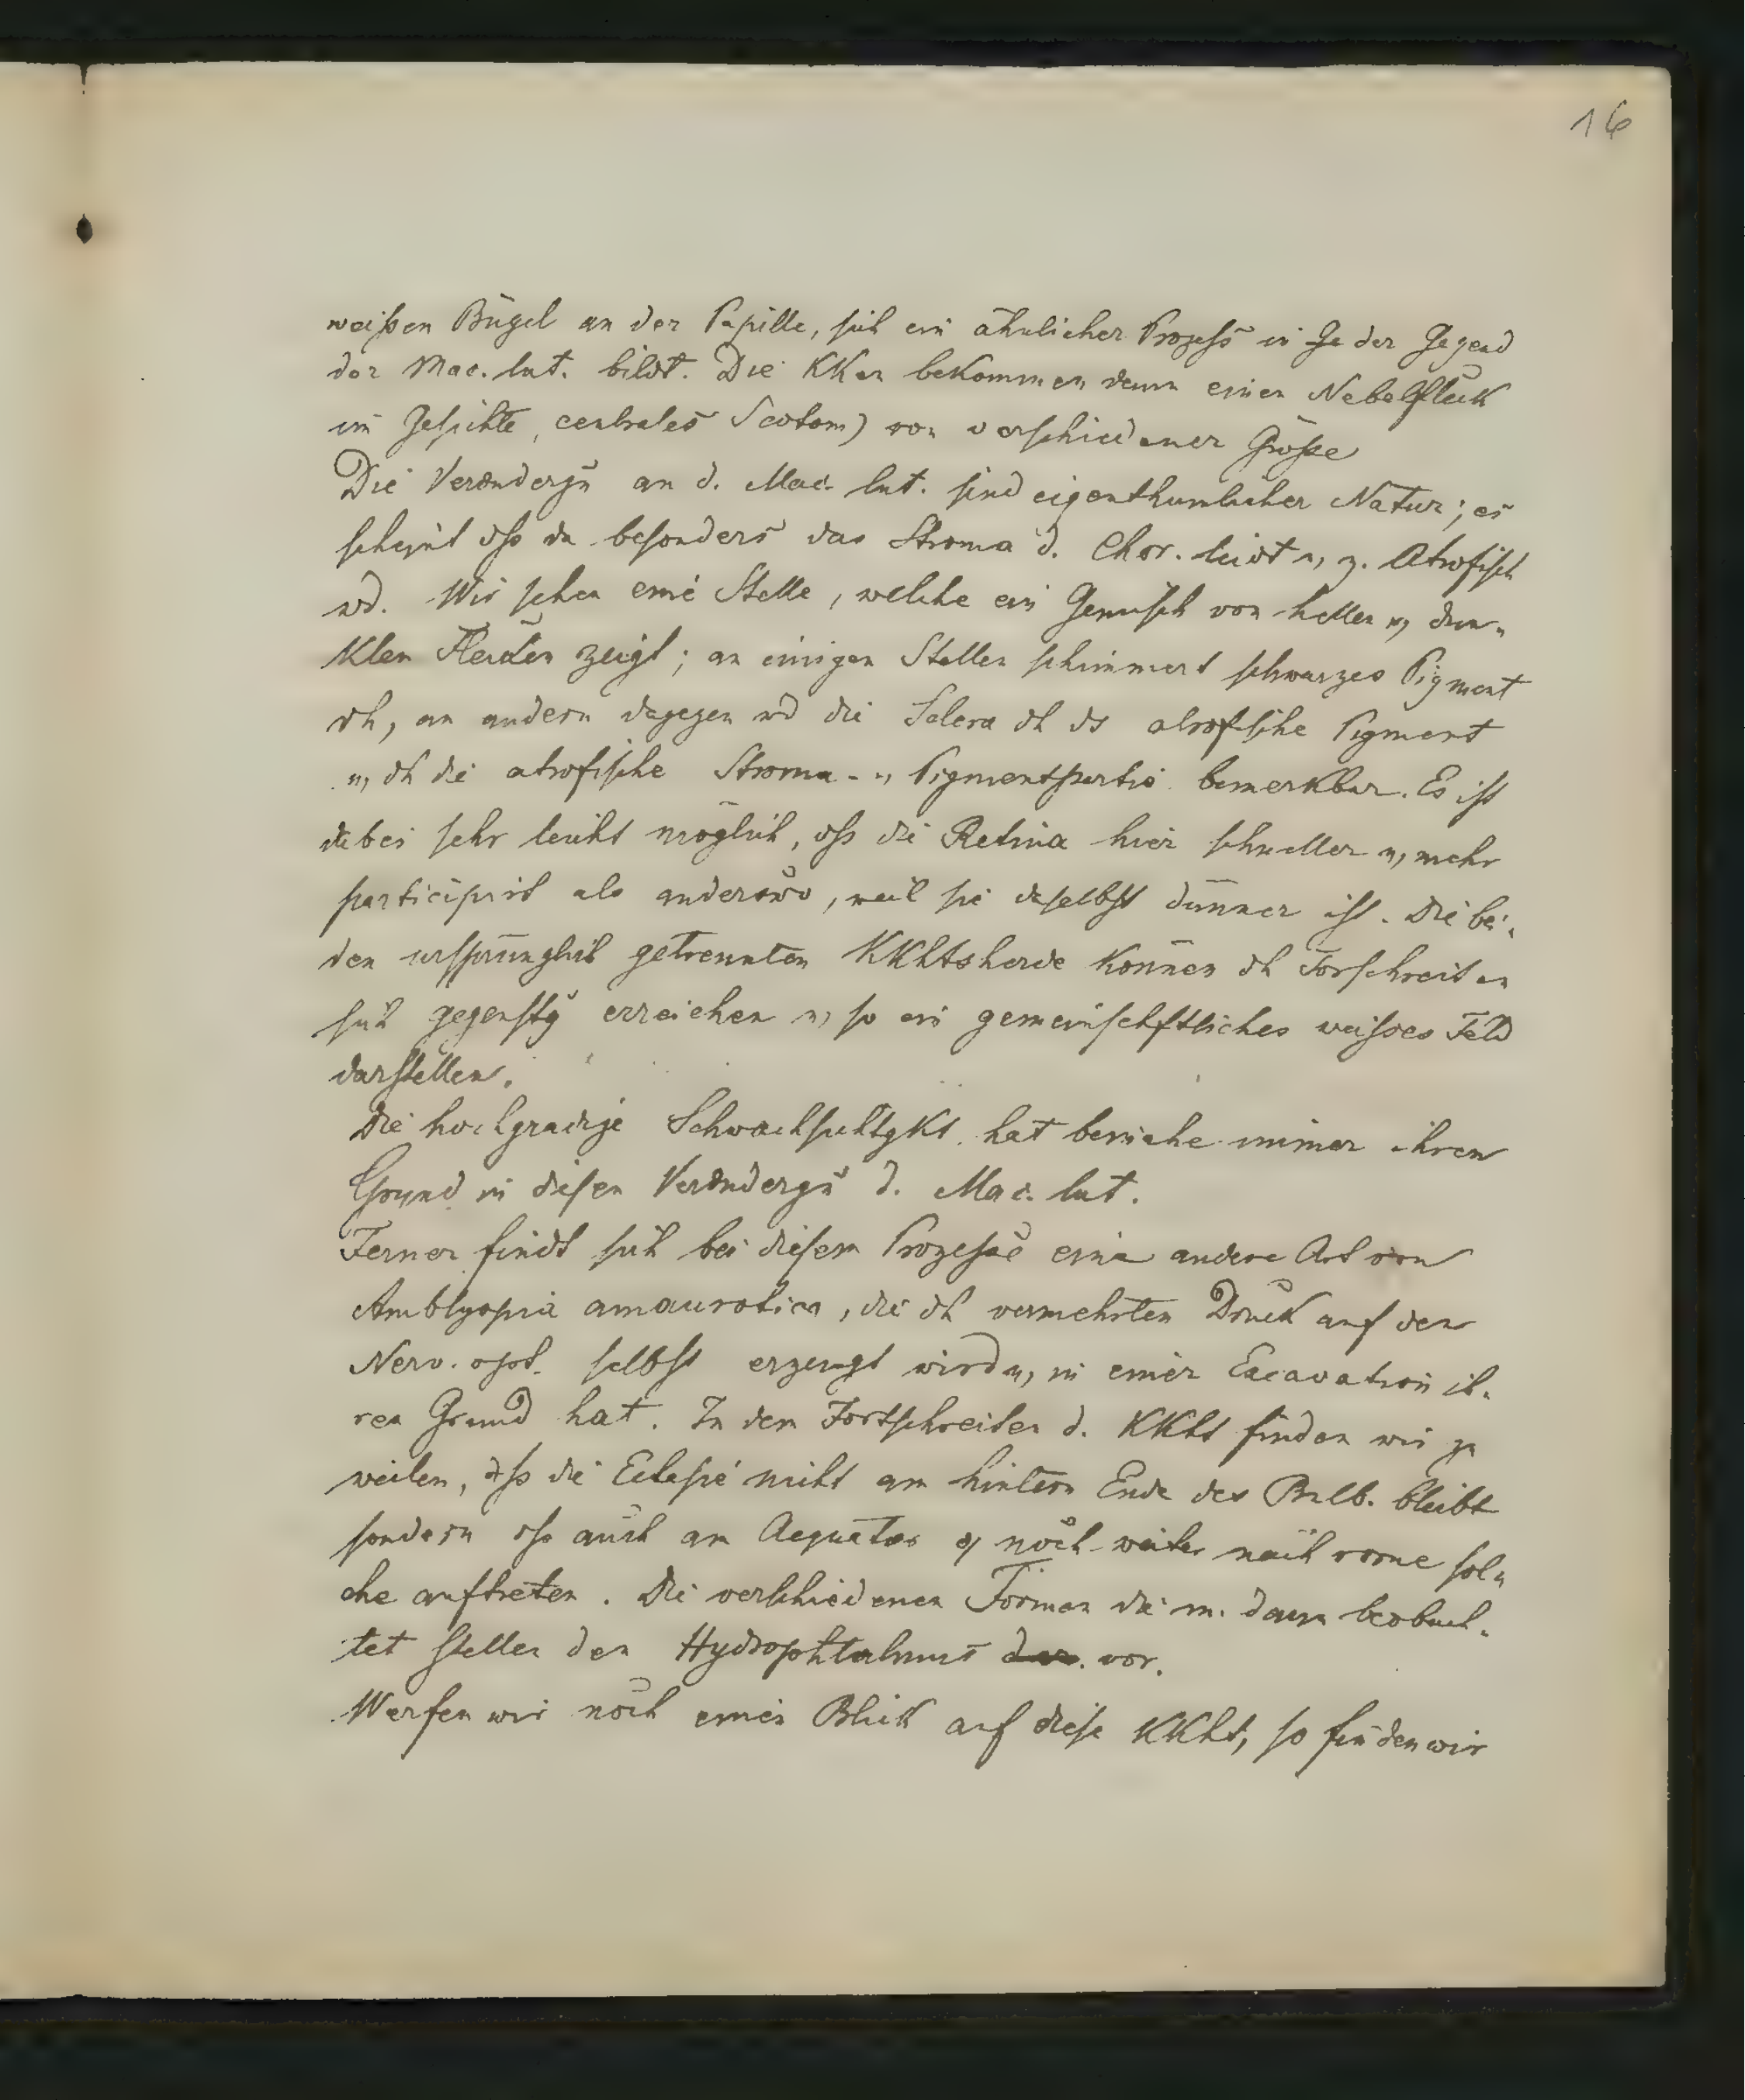 16
weißen Bügel an der Papille, sich ein ähnlicher Prozess in Ge der Gegend
der Mac. lut. bildt. Die KKen bekommen dann einen Nebelfleck
im Gesichte, centrales Scotom) von verschiedener Größe
Die Verändergn an d. Mac. lut. sind eigenthümlicher Natur; es
scheint dss da besonders das Stroma d. Chor. leidt u, z. Atrofisch
wd. Wir sehen eine Stelle, welche ein Gemisch von hellen u, dun-
klen Flecken zeigt; an einigen Stellen schimmert schwarzes Pigment
dh, an andern dagegen wd die Sclera dh ds atrofische Pigment
u, dh die atrofische Stroma- u, Pigmentpartie bemerkbar. Es ist
dabei sehr leicht möglich, dss die Retina hier schneller u, mehr
participirt als anderswo, weil sie daselbst dünner ist. Die bei-
den ursprünglich getrennten KKhtsherde können dh Forschreiten
sich gegenstg erreichen u, so ein gemeinschftliches weisses Feld
darstellen.
Die hochgradige Schwachsichtgkt hat beinahe immer ihren
Grund in diesen Verändergn d. Mac. lut.
Ferner findt sich bei diesem Prozesse eine andere Art von
Amblyopia amaurotica, die dh vermehrten Druck auf den
Nerv. opt. selbst erzeugt wird u, in einer Excavation ih-
ren Grund hat. In dem Fortschreiten d. KKht finden wir zu
weilen, dss die Ectasie nicht am hintern Ende des Bulb. bleibt
sondern dss auch am Aequator noch weiter nach vorne sol-
che auftreten. Die verschiedenen Formen die m. dann beobach-
tet stellen den Hydrophtalmus dar. vor.
Werfen wir noch einen Blick auf diese KKht, so finden wir